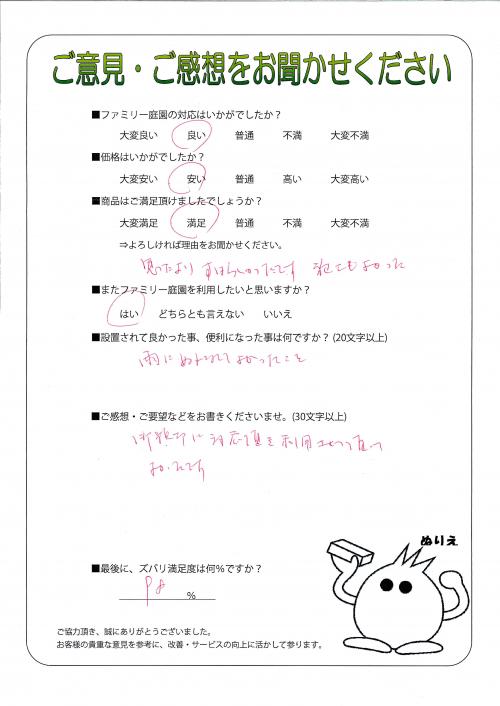 ご意見・ご感想をお聞かせください
■ファミリー庭園の対応はいかがでしたか？
大変良い 良い 普通 不満 大変不満
■価格はいかがでしたか？
大変安い 安い 普通 高い 大変高い
■商品はご満足頂けましたでしょうか？
大変満足 満足 普通 不満 大変不満
⇒よろしければ理由をお聞かせください。
思ったより すばらしかったです
■またファミリー庭園を利用したいと思いますか？
はい どちらとも言えない いいえ
■設置されて良かった事、便利になった事は何ですか？ (20文字以上)
雨にぬれなくてよかったこと
■ご感想・ご要望などをお書きくださいませ。(30文字以上)
よかったです
ぬりえ
■最後に、ズバリ満足度は何％ですか？
％
ご協力頂き、誠にありがとうございました。
お客様の貴重な意見を参考に、改善・サービスの向上に活かして参ります。